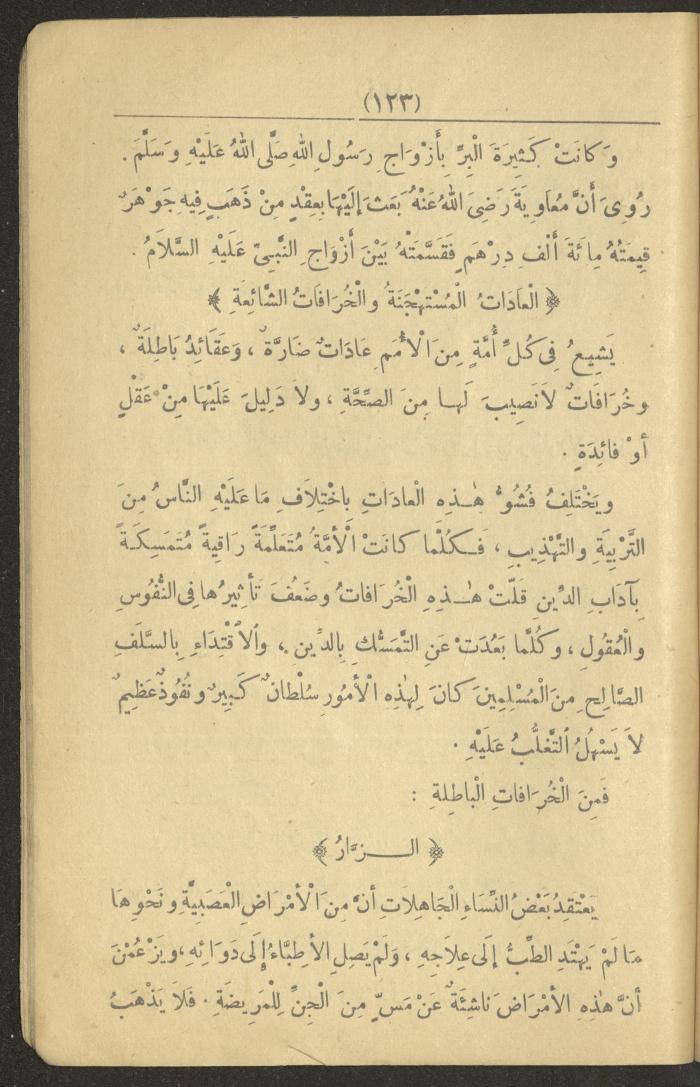 (١٢٣)
وَكَانَتْ كَثِيرَةَ الْبِرِّ بِأَزْوَاجِ رَسُولِ اللهِ صَلَّى اللهُ عَلَيْهِ وَسَلَّمَ .
رُوِىَ أَنَّ مُعَاوِيَةَ رَضِىَ اللهُ عَنْهُ بَعَثَ إِلَيْهَا بِعِقْدٍ مِنْ ذَهَبٍ فِيهِ جَوْهَرٌ
قِيمَتُهُ مِائَةَ أَلْفِ دِرْهَمٍ فَقَسَّمَتْهُ بَيْنَ أَزْوَاجِ النَّبِىِّ عَلَيْهِ السَّلَامُ .
﴿ الْعَادَاتُ الْمُسْتَهْجَنَةُ والْخُرَافَاتُ الشَّائِعَةِ ﴾
يَشِيعُ فِى كُلِّ أُمَّةٍ مِنَ الْأُمَمِ عَادَاتٌ ضَارَّةٌ ، وَعَقَائِدُ بَاطِلَةٌ ،
وخُرَافَاتٌ لاَ نَصِيبَ لَهَا مِنَ الصِّحَّةِ ، ولا دَلِيلَ عَلَيْهَا مِنْ عَقْلٍ
أوْ فائِدَةٍ .
ويَخْتَلِفُ فُشُوُّ هٰذِهِ الْعادَاتِ باخْتِلَافِ مَا عَلَيْهِ النَّاسُ مِنَ
التَّرْبِيَةِ والتَّهْذِيبِ ، فَكُلَّما كانَتْ الْأُمَّةُ مُتَعَلِّمَةً رَاقِيَةً مُتَمَسِكَةً
بِآدَابِ الدِّينِ قَلَّتْ هٰذِهِ الْخُرَافاتُ وضَعُفَ تَأثِيرُها فِى النُّفُوسِ
والْعُقُولِ ، وكُلَّما بَعُدَتْ عَنِ التَّمَسُّكِ بِالدِّينِ ، والاقْتِدَاءِ بِالسَّلَفِ
الصَّالِحِ مِنَ الْمُسْلِمِينَ كانَ لِهٰذِهِ الْأُمُورِ سُلْطانٌ كَبِيرٌ ونُفُوذٌ عَظِيمٌ
لاَ يَسْهُلُ التَّغَلُّبُ عَلَيْهِ .
فَمِنَ الْخُرَافاتِ الْباطِلةِ :
﴿ الزَّارُ ﴾
يَعْتَقِدُ بَعْضُ النِّسَاءِ الْجَاهِلاَتِ أنَّ مِنَ الْأَمْرَاضِ الْعَصَبِيَّةِ ونَحْوِهَا
مَا لَمْ يَهْتَدِ الطِّبُّ إلَى عِلاَجِهِ ، وَلَمْ يَصِلِ الأطِبَّاءُ إِلَى دَوَائِهِ ، ويَزْعُمْنَ
أنَّ هٰذِهِ الأمْرَاضَ نَاشِئَةٌ عَنْ مَسٍّ مِنَ الْجِنِّ لِلْمَرِيضَةِ . فَلاَ يَذْهَبُ